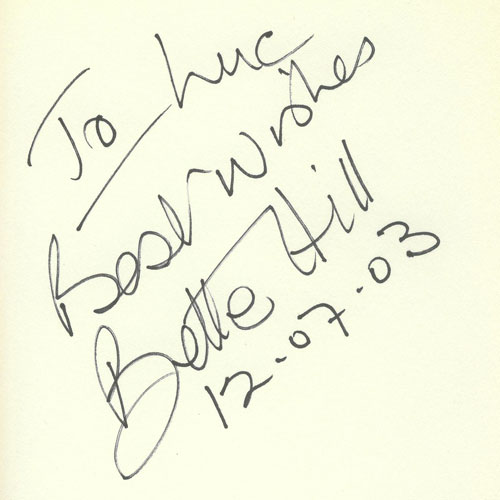 To Luc
Best Wishes
Bette Hill
12-07-03